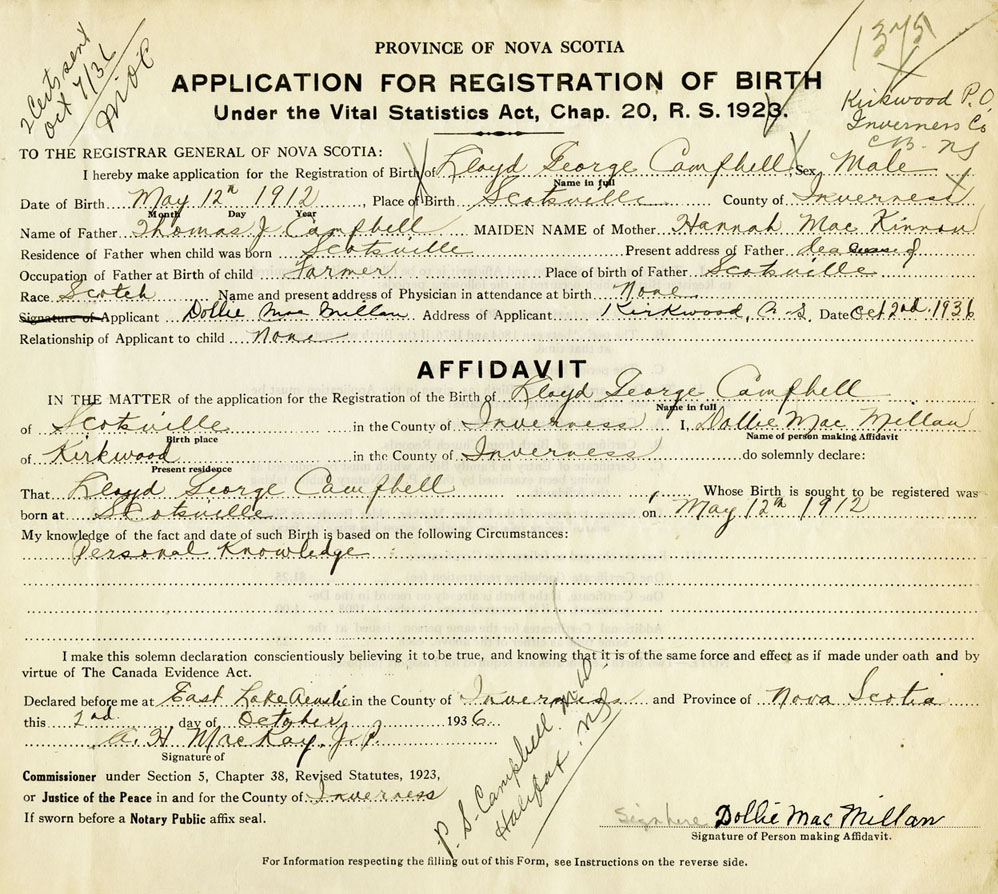 2 Certs sent
Oct 7/36
1375
Kirkwood P.O.
Inverness Co
C.B. NS
PROVINCE OF NOVA SCOTIA
APPLICATION FOR REGISTRATION OF BIRTH
Under the Vital Statistics Act, Chap. 20, R. S. 1923.
TO THE REGISTRAR GENERAL OF NOVA SCOTIA:
I hereby make application for the Registration of Birth of Lloyd George Campbell Sex Male
Name in full
Date of Birth May 12th 1912, Place of Birth Scotsville County of Inverness
Month Day Year
Name of Father Thomas J Campbell MAIDEN NAME of Mother Hannah Mac Kinnon
Residence of Father when child was born Scotsville Present address of Father deceased
Occupation of Father at Birth of child Farmer Place of birth of Father Scotsville
Race Scotch Name and present address of Physician in attendance at birth None
Signature of Applicant Dollie Mac Millan Address of Applicant Kirkwood, N. S. Date Oct 2nd 1936
Relationship of Applicant to child None
AFFIDAVIT
IN THE MATTER of the application for the Registration of the Birth of Lloyd George Campbell
Name in full
of Scotsville in the County of Inverness I, Dollie Mac Millan
Birth place Name of person making Affidavit
of Kirkwood in the County of Inverness do solemnly declare:
Present residence
That Lloyd George Campbell, Whose Birth is sought to be registered was
born at Scotsville on May 12th 1912
My knowledge of the fact and date of such Birth is based on the following Circumstances:
Personal Knowledge
I make this solemn declaration conscientiously believing it to be true, and knowing that it is of the same force and effect as if made under oath and by
virtue of The Canada Evidence Act.
Declared before me at East Lake Ainslie in the County of Inverness and Province of Nova Scotia
this 2nd day of October 1936
A. H. MacKay, J. P.
Signature of
Commissioner under Section 5, Chapter 38, Revised Statutes, 1923,
or Justice of the Peace in and for the County of Inverness
If sworn before a Notary Public affix seal.
P. S. Campbell
Halifax NS
Sign here Dollie Mac Millan
Signature of Person making Affidavit.
For Information respecting the filling out of this Form, see Instructions on the reverse side.